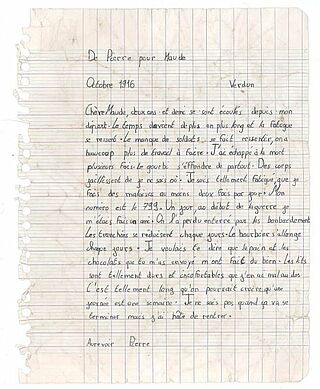 De Pierre pour Maude
Octobre 1916 Verdun
Chère Maude, deux ans et demi se sont écoulés depuis mon
départ. Le temps devient de plus en plus long et la fatigue
se ressent. Le manque de soldats se fait ressentir, on a
beaucoup plus de travail à faire. J'ai échappé à la mort
plusieurs fois. Le gourbi s'effondre de partout. Des corps
jaillissent de je ne sais où. Je suis tellement fatigué que je
fais des malaises au moins deux fois par jour. Mon
numéro est le 799. Un jour au début de la guerre je
m'étais fais un ami. On l'a perdu enterré par les bombardements.
Les tranchées se réduisent chaque jours. Le bourbier s'allonge
chaque jours. Je voulais te dire que le pain et les
chocolats que tu m'as envoyé m'ont fait du bien. Les lits
sont tellement durs et inconfortables que j'en ai mal au dos.
C'est tellement long qu'on pourrait croire qu'une
journée est une semaine. Je ne sais pas quand ça va se
terminer mais j'ai hâte de rentrer.
Aurevoir Pierre